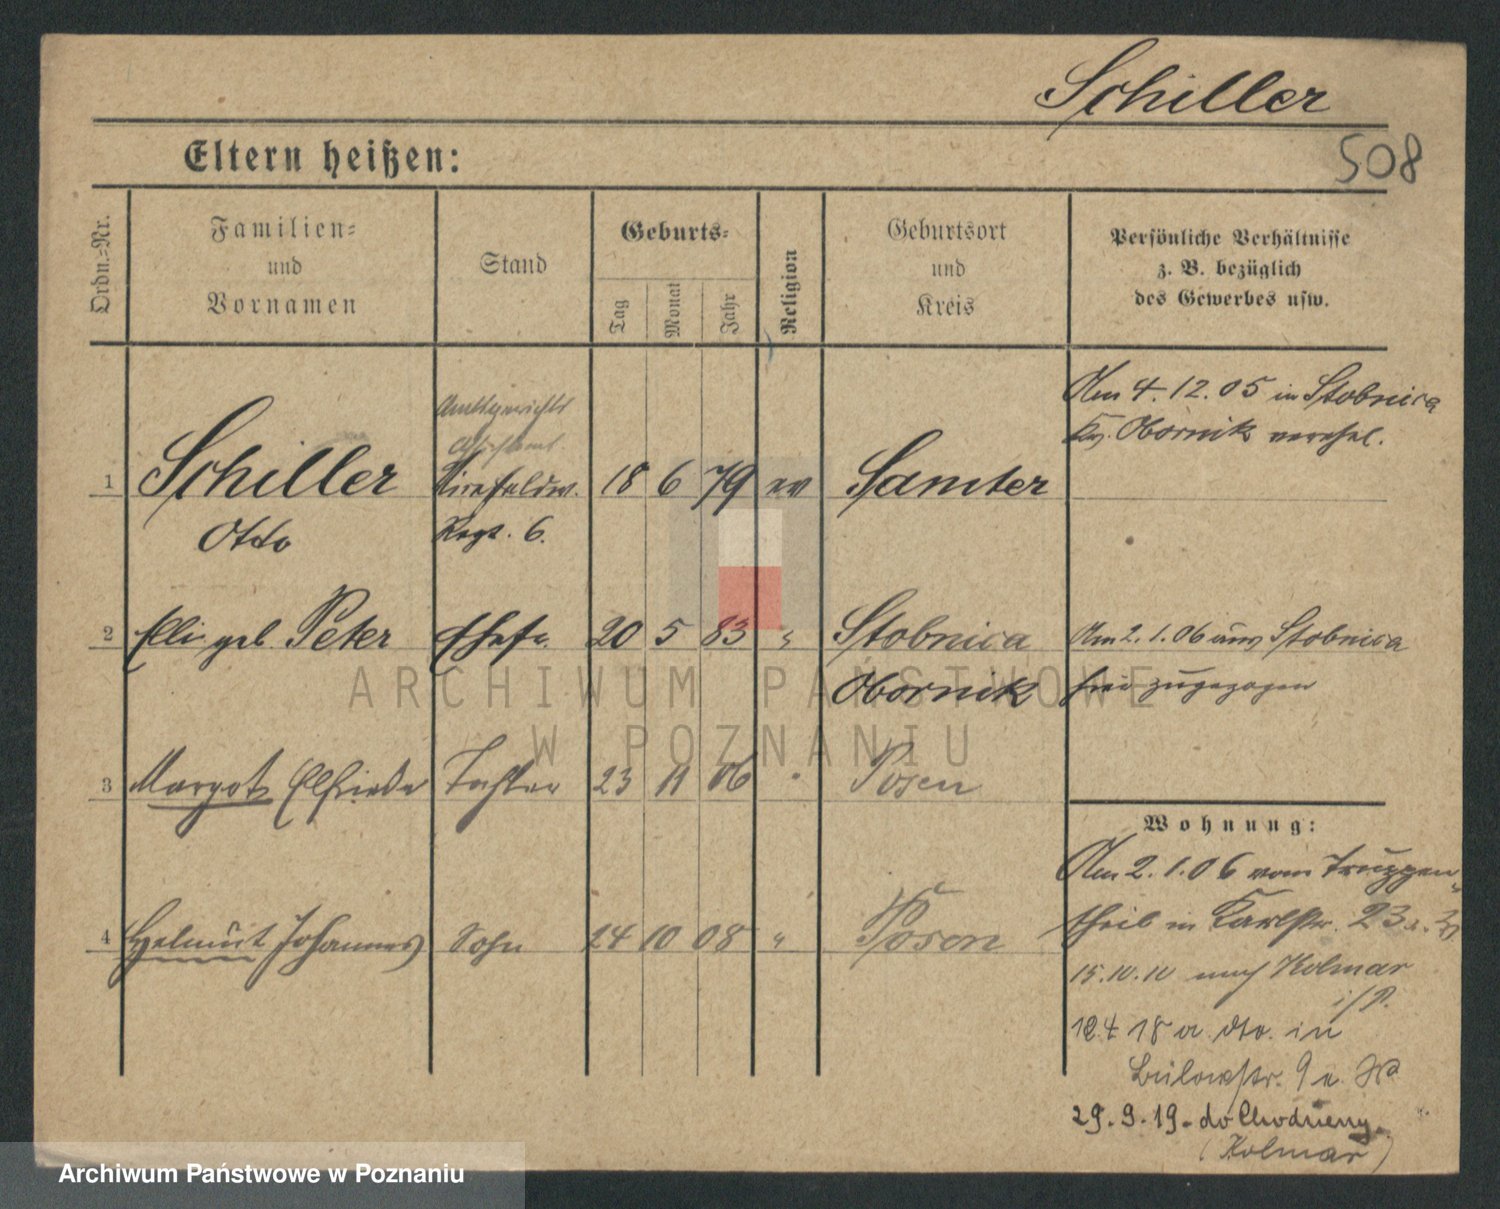 Schiller
508
Eltern heißen:
Ordn.-Nr.
Familien-
und
Vornamen
Stand
Geburts-
Tag
Monat
Jahr
Religion
Geburtsort
und
Kreis
Persönliche Verhältnisse
z. B. bezüglich
des Gewerbes usw.
Am 4.12.05 in Stobnica
Obornik verehel.
Amtsgerichts
1 Schiller 18 6 79 ev Samter
Otto Regt. 6.
2 Elli geb. Peter Ehefr. 20 5 83 " Stobnica
Am 2.1.06 aus Stobnica
Obornik
hier zugezogen
3 Margot Elfriede Tochter 23 11 06 " Posen
Wohnung:
Am 2.1.06 vom Truppen-
theil in Karlstr. 23a.
4 Helmut Johannes Sohn 24 10 08 " Posen
15.10.10 nach Kolmar
i/P.
18 a. dto. in
Bülowstr. 9
29.9.19. do Chodzieży
(Kolmar)
ARCHIWUM PAŃSTWOWE
W POZNANIU
Archiwum Państwowe w Poznaniu